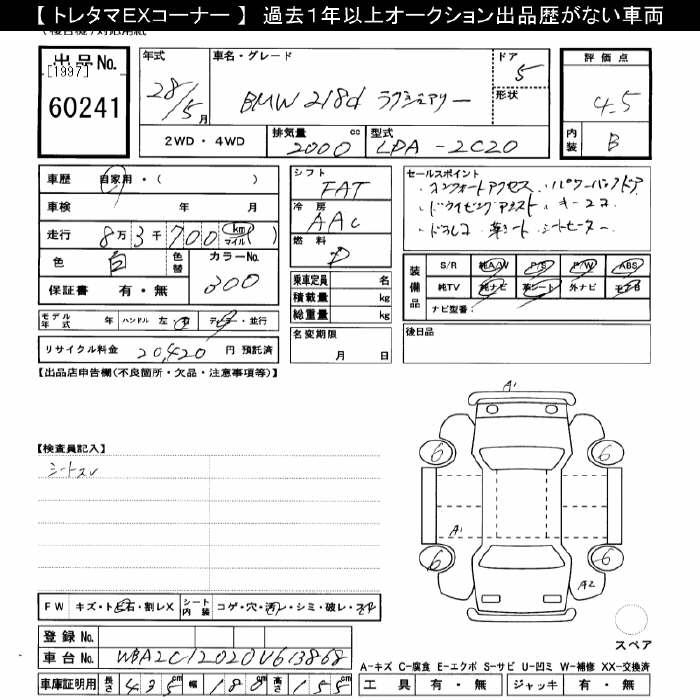 【 トレタマEXコーナー 】 過去1年以上オークション出品歴がない車両
出品No.
[1997]
60241
年式
28/5 月
車名・グレード
BMW 218d ラグジュアリー
ドア
5
形状
評価点
4.5
内装
B
2WD・4WD
排気量
2000 cc
型式
LDA-2C20
車歴
自家用・( )
車検 年 月
走行 8万 3千 700 (km マイル)
色 白
色替
カラーNo.
300
保証書 有・無
モデル年式 年 ハンドル 左・右 ディーラー・並行
リサイクル料金 20,420 円 預託済
シフト
FAT
冷房
AAC
燃料
D
乗車定員 名
積載量 kg
総重量 kg
名変期限
月 日
セールスポイント
・コンフォートアクセス・パワーバックドア
・ドライビングアシスト・キー2コ
・ドラレコ 革シート シートヒーター
装備品
S/R 純A/W P/S P/W ABS
純TV 純ナビ 革シート 外ナビ エアB
ナビ型番:
後日品
【出品店申告欄(不良箇所・欠品・注意事項等)】
【検査員記入】
シートスレ
A1
6
6
A1
6
6
A2
スペア
FW キズ・トビ石・割レX
シート内装 コゲ・穴・汚レ・シミ・破レ・スレ
登録No.
車台No. WBA2C12020V613868
車庫証明用 長さ 435cm 幅 180cm 高さ 155cm
A-キズ C-腐食 E-エクボ S-サビ U-凹ミ W-補修 XX-交換済
工具 有・無 ジャッキ 有・無